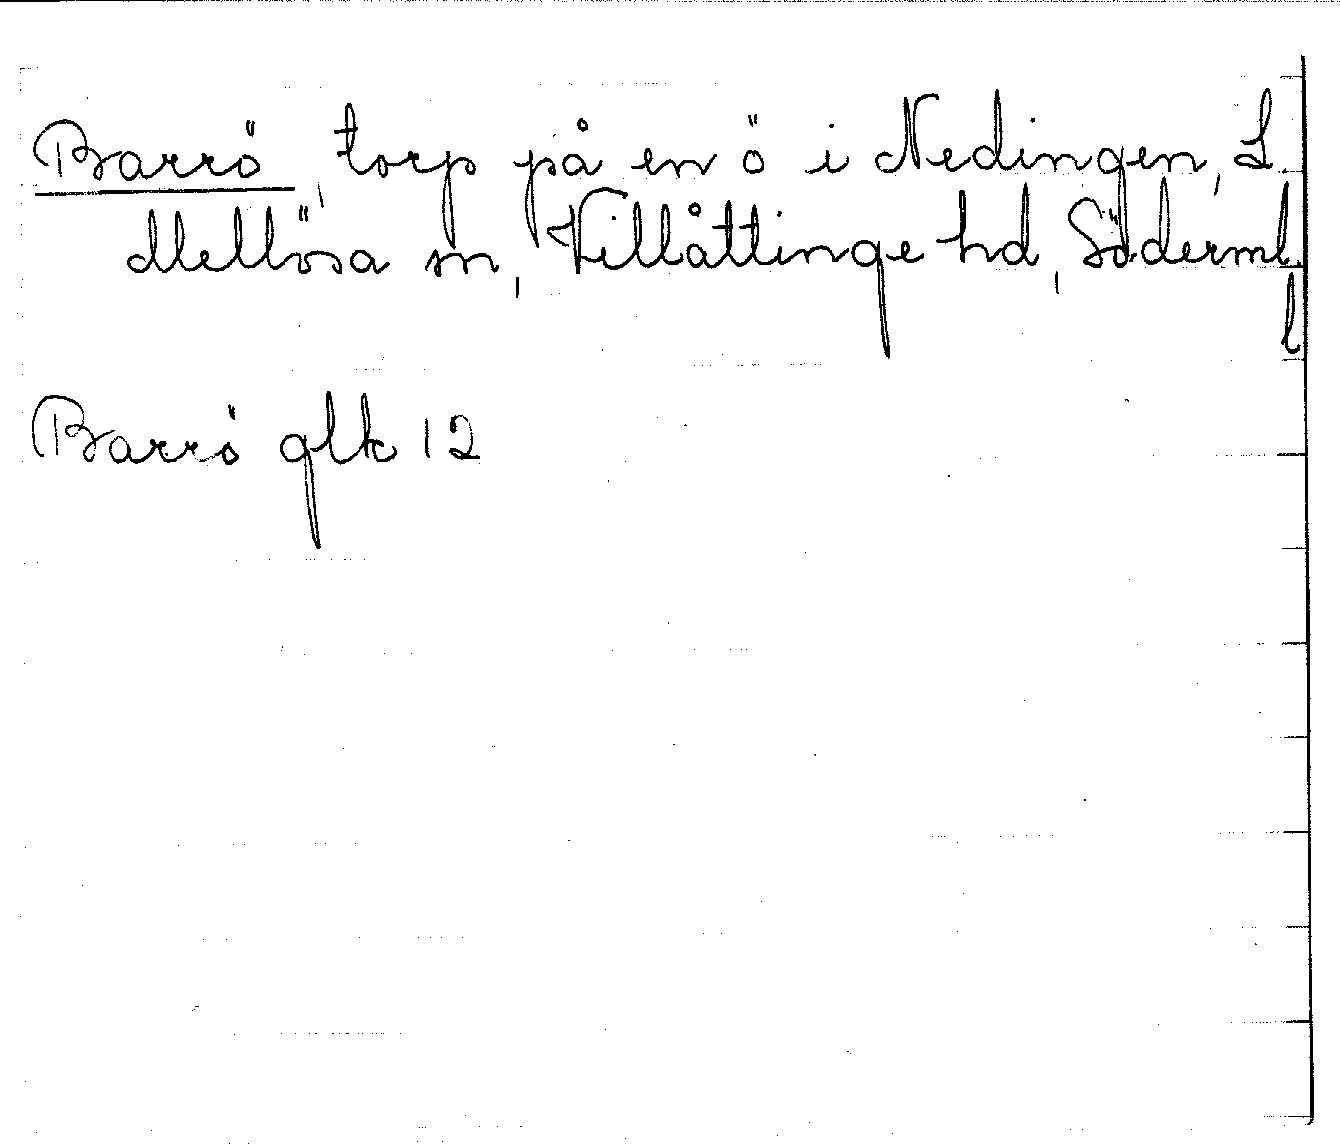 Barrö, torp på en ö i Nedingen, L.
Mellösa sn, Villåttinge hd, Söderml.
l
Barrö glk 12